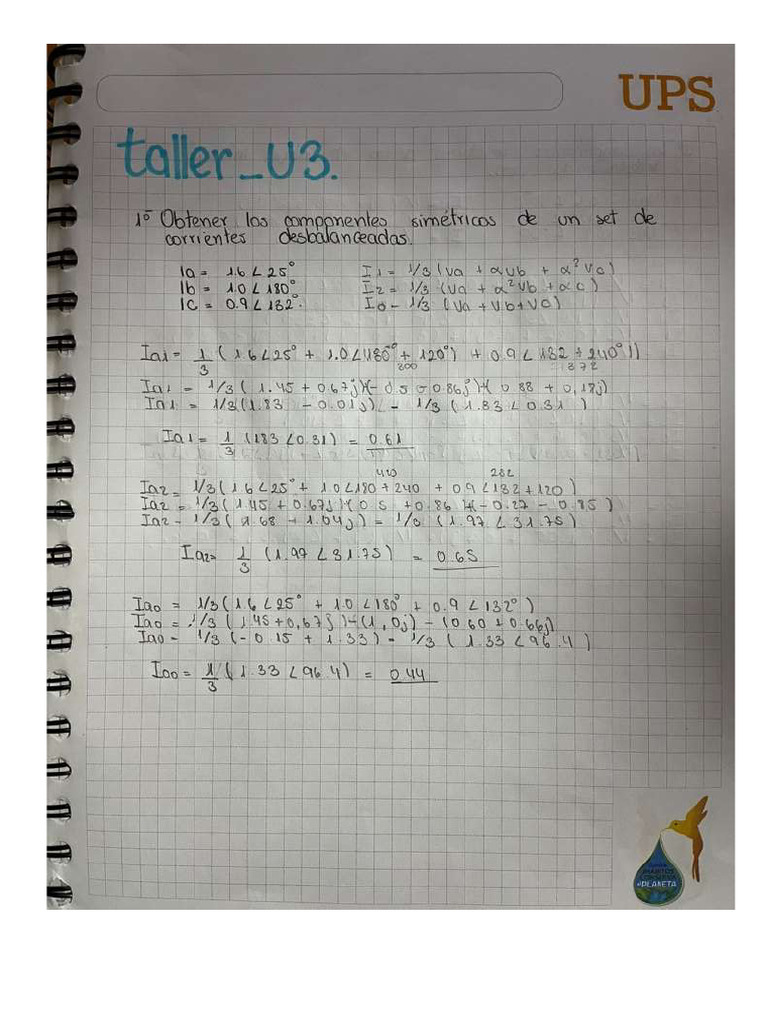 UPS
taller_U3.
1º Obtener los componentes simétricos de un set de
corrientes desbalanceadas.
Ia = 1.6∠25° I1 = 1/3 (Va + αVb + α²Vc)
Ib = 1.0∠180° I2 = 1/3 (Va + α²Vb + αc)
Ic = 0.9∠132°. I0 - 1/3 (Va + Vb + Vc)
Ia1 = 1/3 (1.6∠25° + 1.0∠(180° + 120°) + 0.9∠132 + 240°))
300 372
Ia1 = 1/3 (1.45 + 0.67j)(-0.5 - 0.86j)+(0.88 + 0,18j)
Ia1 = 1/3(1.83 - 0.01j) - 1/3 (1.83∠0.31)
Ia1 = 1/3 (1.83∠0.31) = 0.61
420 282
Ia2 = 1/3 (1.6∠25° + 1.0∠180 + 240 + 0.9∠132 + 120)
Ia2 = 1/3 (1.45 + 0.67j)(0.5 + 0.86)+(-0.27 - 0.85)
Ia2 - 1/3 (1.68 + 1.04j) = 1/3 (1.97∠31.75)
Ia2 = 1/3 (1.97∠31.75) = 0.65
Ia0 = 1/3 (1.6∠25° + 1.0∠180° + 0.9∠132°)
Ia0 = 1/3 (1.45 + 0,67j)-(1,0j) - (0.60 + 0.66j)
Ia0 - 1/3 (-0.15 + 1.33) - 1/3 (1.33∠96.4)
Iao = 1/3 (1.33∠96.4) = 0.44
PLANETA